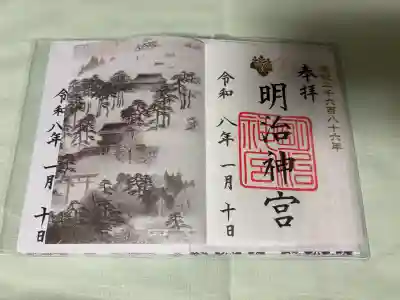 皇紀二千六百八十六年
奉拝
明治神宮
令和八年一月十日
令和八年一月十日